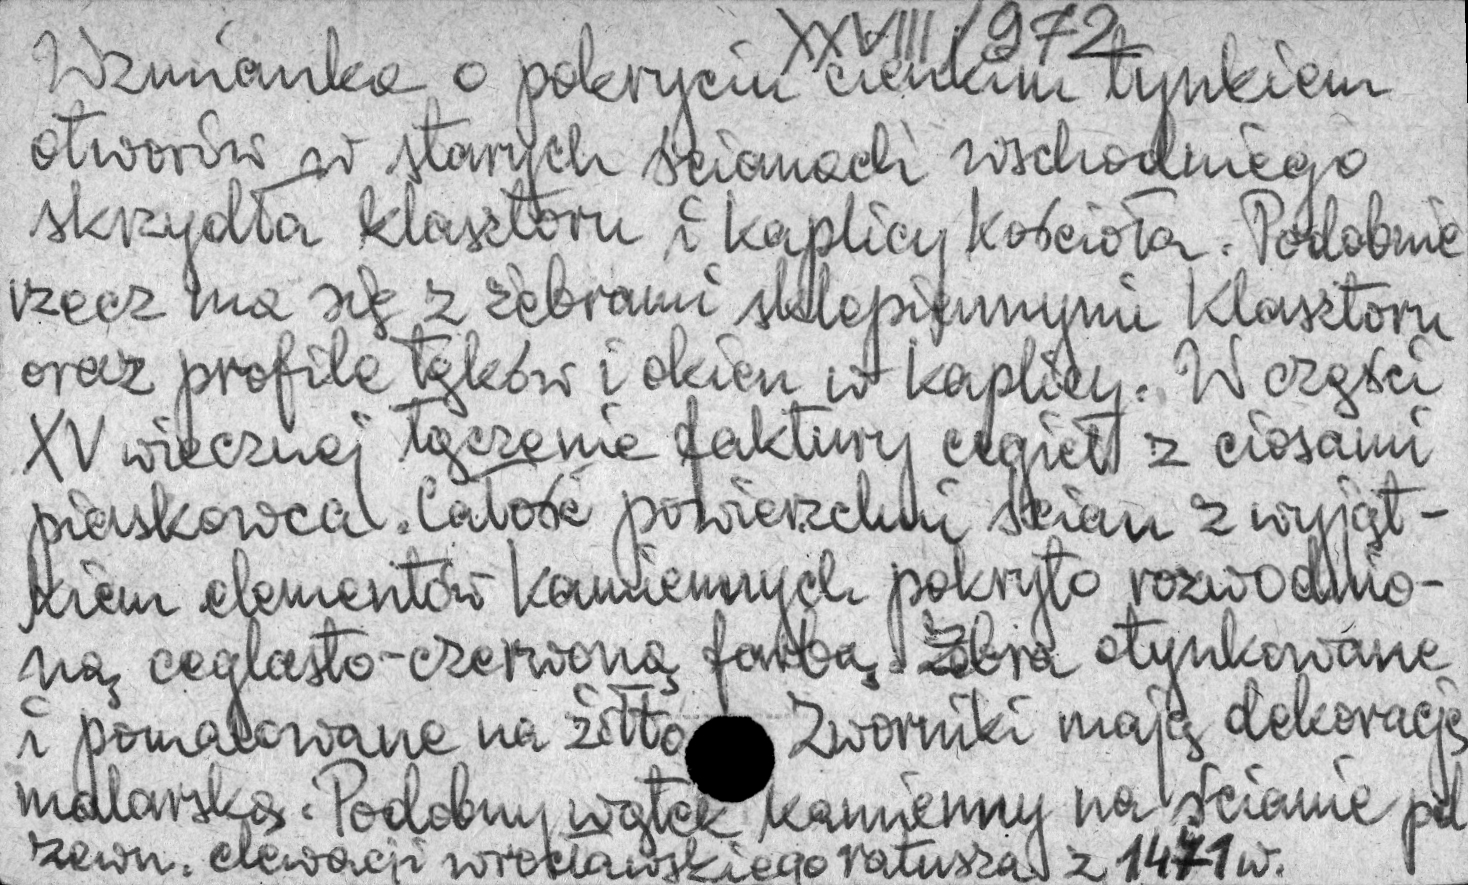 XXVIII/972
Wzmianka o pokryciu cienkim tynkiem
otworów w starych ścianach wschodniego
skrzydła klasztoru i kaplicy kościoła. Podobnie
rzecz ma się z żebrami sklepiennymi klasztoru
oraz profile łęków i okien w kaplicy. W części
XV wiecznej łączenie faktury cegieł z ciosami
piaskowca. Całość powierzchni ścian z wyjąt-
kiem elementów kamiennych pokryto rozwodnio-
ną ceglasto-czerwoną farbą. Żebra otynkowane
i pomalowane na żółto Zworniki mają dekorację
malarską. Podobny wątek kamienny na ścianie płd
zewn. elewacji wrocławskiego ratusza z 1471 w.